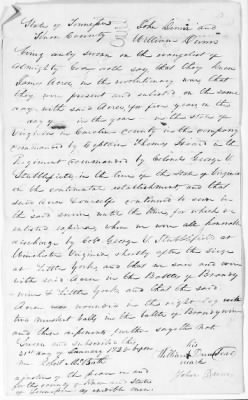 State of Tennessee John Dunn and
County William Dunn
being duly sworn on the evangelist of
Almighty God doth say that they knew
James Acree in the revolutionary war that
they were present and enlisted on the same
day with said Acree, for five years on the
day of in the year in the state of
Virginia in Caroline county in the company
commanded by Captain Thomas in the
Regiment commanded by Colonel George
Stubblefield in the line of the State of Virginia
on the continental establishment and that
said Acree continued to serve in
the said service until the time for which he
enlisted expired, when we were all honorable
discharge by Col George Stubblefield at
Winchester Virginia shortly after the siege
at Little York, and that we was and were
with said Acree in the Battles of Brandy
wine & Little York, and that the said
Acree was wounded in the right leg with
two musket balls in the battle of Brandywine
and these deponents further sayeth not
Sworn and Subscribed this his
21st day of January 1826 before me William Dunn Seal
Robt McBath mark
a justice of the peace in and John
for the county of and State
of Tennessee as credible men